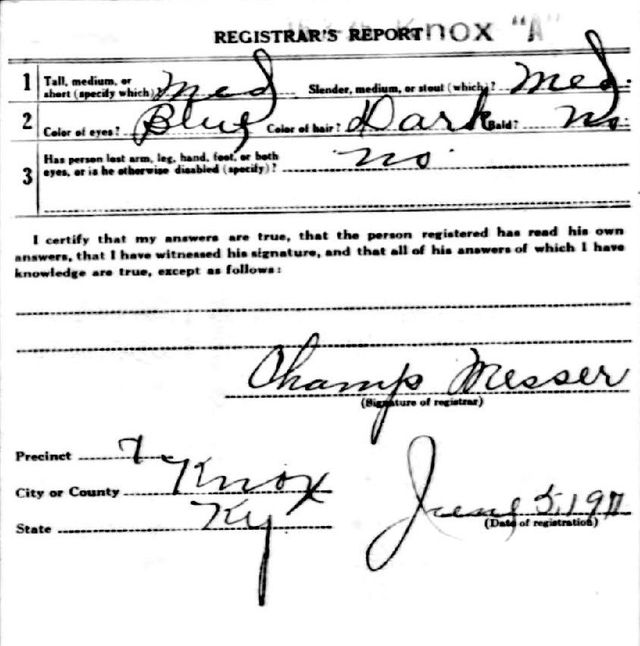 REGISTRAR'S REPORT Knox "A"
1 Tall, medium, or short (specify which)? Med Slender, medium, or stout (which)? Med.
2 Color of eyes? Blue Color of hair? Dark Bald? No.
3 Has person lost arm, leg, hand, foot, or both eyes, or is he otherwise disabled (specify)? no.
I certify that my answers are true, that the person registered has read his own
answers, that I have witnessed his signature, and that all of his answers of which I have
knowledge are true, except as follows:
Champ Messer
(Signature of registrar)
Precinct 7
City or County Knox
State Ky
June 5, 1917
(Date of registration)